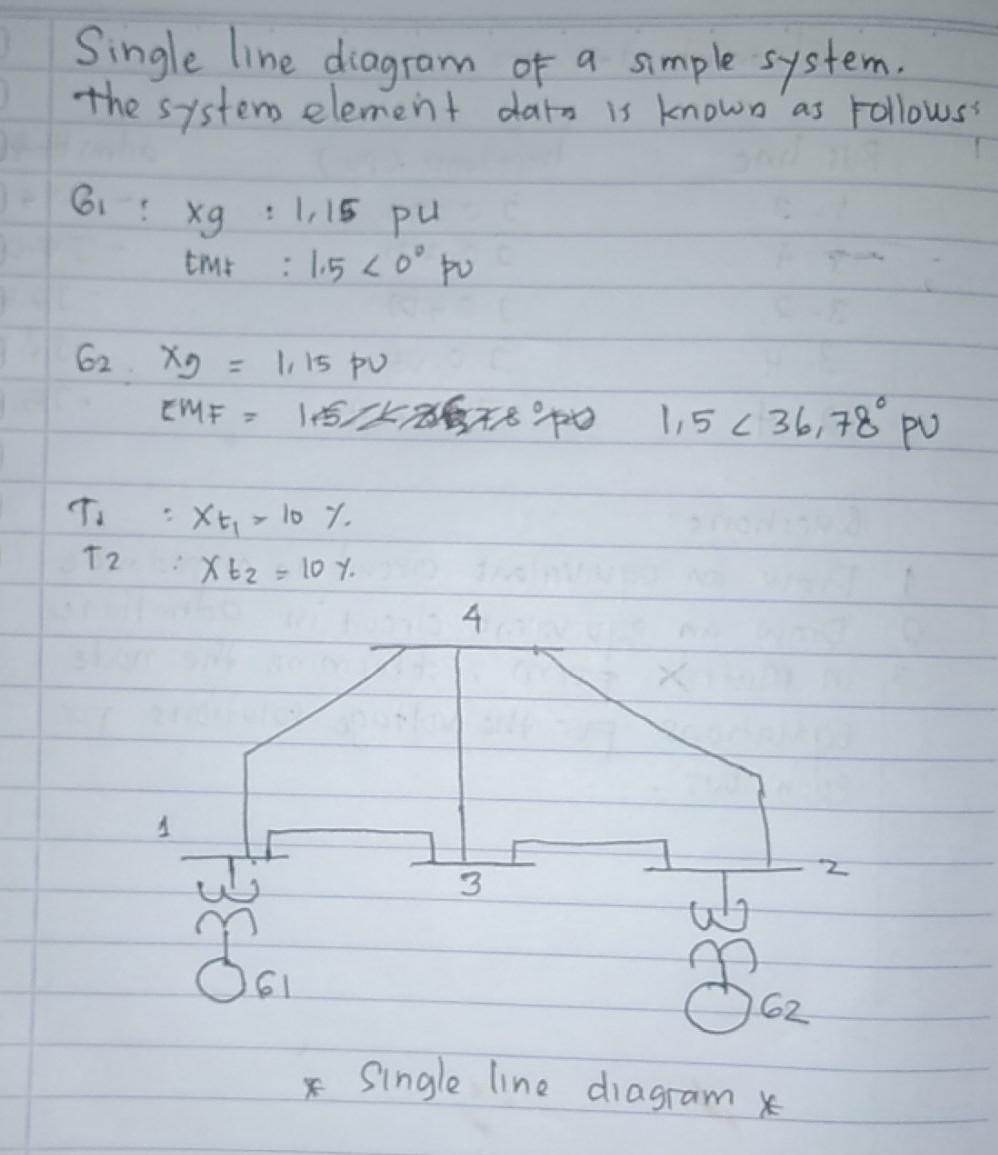 Single line diagram of a simple system.
The system element data is known as follows:
G1 : xg : 1,15 pu
EMF : 1.5 < 0° pu
G2 xg = 1,15 pu
EMF = 1,5 < 36,78° pu
T1 : Xt1 = 10 %.
T2 : Xt2 = 10 %.
4
1
3
2
G1
G2
* Single line diagram *